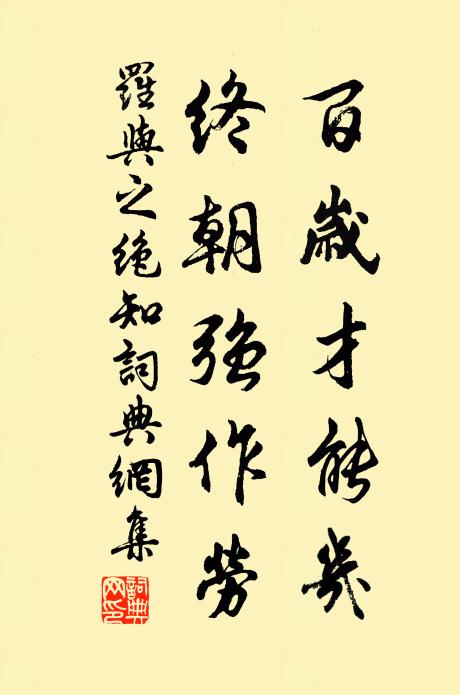 百歲才能幾
終朝強作勞
羅與之絕知詞典網集
詞典網印